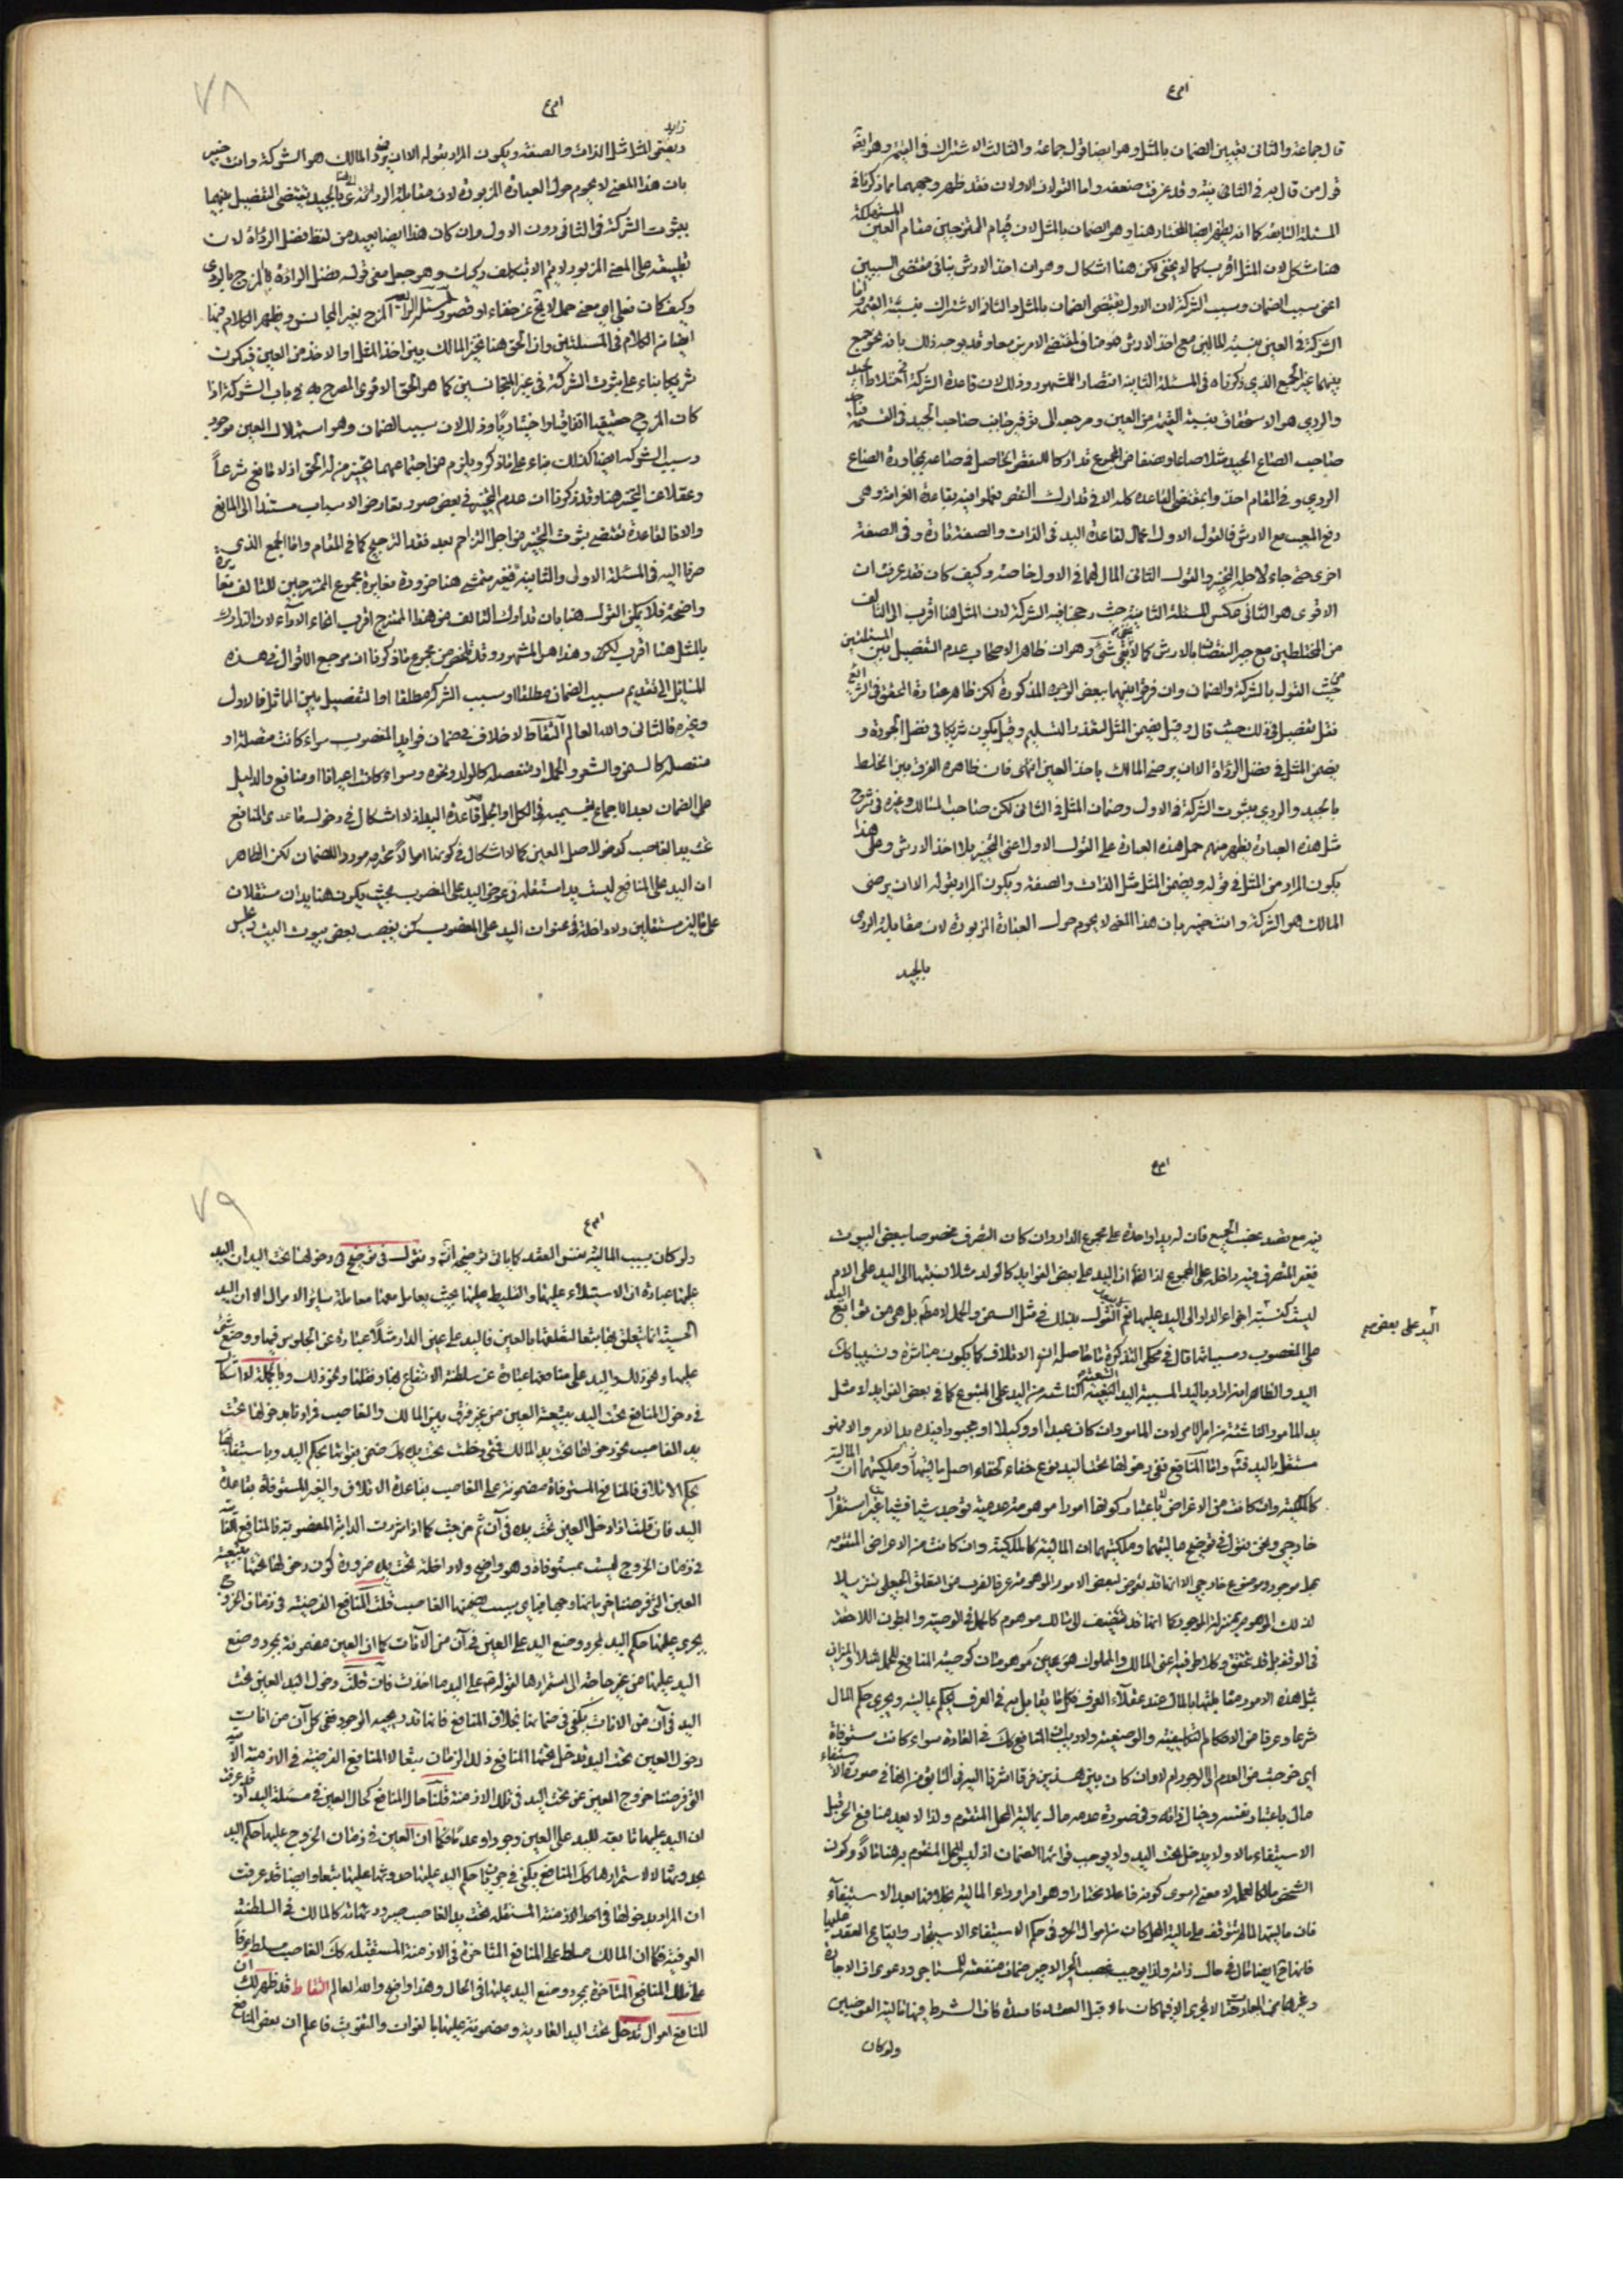 قال جماعة والثانى تعيين الضمان بالمثل وهو ايضا قول جماعة والثالث الاشتراك فى القيمة وهو ايضا
قول من قال به فى الثانى بينه وقد عرفت ضعفه واما القولان الاولان فقد ظهر وجههما مما ذكرنا فى
المسئلة السابقة كما انه يظهر ايضا المختار هنا وهو الضمان بالمثل لان قيام الممتزجين مقام العين المستهلكة
هنا مشكل لان المثل اقرب كما لا يخفى لكن هنا اشكال وهو ان اخذ الارش ينافى مقتضى السببين
اعنى سبب الضمان وسبب الشركة لان الاول يقتضى الضمان بالمثل والثانى الاشتراك بنسبة القيمة
الشركة فى العين بنسبة المالين مع اخذ الارش فهو مناف لمقتضى الامرين معا وقد يوجه ذلك بانه نحو جمع
بينهما غير الجمع الذي ذكرناه فى المسئلة الثانية انتصارا للمشهور وذلك لان قاعدة الشركة فى اختلاط الجيد
والردي هو الاستحقاق بنسبة القيمة من العين ومرجعه الى توفير جانب صاحب الجيد فى القسمة
صاحب الصاع الجيد مثلا صاعا ونصفا من المجموع تداركا للنقص الحاصل فى صاعه بمجاورة الصاع
الردي وفى المقام اخذ وا بمقتضى القاعدة كلها الا فى تدارك النقص فعملوا فيه بقاعدة الغرامة وهى
دفع المعيب مع الارش فالقول الاول اعمال لقاعدة اليد فى الذات والصفة تارة وفى الصفة
اخرى حتى جاء لاجله التخيير والقول الثانى المال لهما فى الاول خاصة وكيف كان فقد عرفت ان
الاقوى هو الثانى عكس المسئلة الثانية حيث رجحنا فيه الشركة لان المثل هنا اقرب الى التالف
من المختلطين مع جبر النقصان بالارش كما لا يخفى بقى شئ وهو ان ظاهر الاصحاب عدم التفصيل بين المسئلتين
من حيث القول بالشركة والضمان وان فرق بينهما ببعض الوجوه المذكورة لكن ظاهر عبارة المحقق فى الشرائع
نقل تفصيل فى ذلك حيث قال وقيل يضمن المثل لتعذر التسليم وقيل يكون شريكا فى فضل الجودة و
يضمن المثل فى فضل الرداة الا ان يرضى المالك باخذ العين انتهى فان ظاهره الفرق بين الخلط
بالجيد والردي بثبوت الشركة فى الاول وضمان المثل فى الثانى لكن صاحب المسالك وغيره فى شرح
مثل هذه العبارة يظهر منهم حمل هذه العبارة على القول الاول اعنى التخيير بلا اخذ الارش وعلى هذا
يكون المراد من المثل فى قوله ويضمن المثل مثل الذات والصفة ويكون المراد بقوله الا ان يرضى
المالك هو الشركة وانت خبير بان هذا المعنى لا يحوم حول العبارة المزبورة لان مقابلة الردى
بالجيد
٧٨
بان هذا المعنى لا يحوم حول العبارة المزبورة لان مقابلة الردائة بالجيد يقتضى التفصيل بينهما
بثبوت الشركة فى الثانى دون الاول وان كان هذا ايضا بعيد من لفظ فضل الرداة لان
تطبيقه على المعنى المزبور لا يتم الا بتكلف ركيك وهو جعل معنى قوله فضل الرداءة بالمزج بالردى
وكيف كان فعلى اي معنى حمل لا يخ عن خفاء او قصور المسئلة الرابعة المزج بغير المجانس ويظهر الكلام فيها
ايضا من الكلام فى المسئلتين وان الحق هنا تخير المالك بين اخذ المثل او الاخذ من العين فيكون
شريكا بناء على ثبوت الشركة فى غير المتجانسين كما هو الحق الاقوى المصرح به فى باب الشركة اذا
كان المزج حقيقيا اتفاقيا او اختياريا وذلك لان سبب الضمان وهو استهلاك العين موجود
وسبب الشركة ايضا كذلك بناء على ما ذكر ويلزم من اجتماعهما تخيير من له الحق اذ لا مانع شرعاً
وعقلا عن التخيير هنا وقد ذكرنا ان عدم التخيير فى بعض صور تعارض الاسباب مستندا الى المانع
والا فالقاعدة تقتضى ثبوت التخيير من اجل التزاحم بعد فقد الترجيح كما فى المقام واما الجمع الذي
صرنا اليه فى المسئلة الاولى والثانية فغير متمشى هنا ضرورة مغايرة مجموع الممتزجين للتالف مغايرة
واضحة فلا يمكن القول هنا بان تدارك التالف من هذا الممتزج اقرب انحاء الاداء لان التدارك
بالمثل هنا اقرب لكن وهذا هو المشهور وقد تلخص من مجموع ما ذكرنا ان مرجع الاقوال فى هذه
المسائل الى تقديم سبب الضمان مطلقا او سبب الشركة مطلقا او التفصيل بين المماثل فالاول
وغيره فالثانى والله العالم التقاط لا خلاف فى ضمان فوايد المغصوب سواء كانت متصلة او
منفصلة كالسمن والشعر والحمل او منفصلة كالولد ونحوه وسواء كان اعيانا او منافع والدليل
على الضمان بعد الاجماع بقسميه فى الكل او الجل قاعدة اليد اذ لا اشكال فى دخول ما عدى المنافع
تحت يد الغاصب كدخول اصل العين كما لا اشكال فى كونها اموالا محترمه موردا للضمان لكن الظاهر
ان اليد على المنافع ليست يدا مستقلة فى عرض اليد على المغصوب بحيث يكون هنا يدان مستقلان
على مالين مستقلين ولا داخلة فى عنوان اليد على المغصوب كمن يغصب بعض بيوت البيت وجلس
فيه مع قصد غصب الجميع فان له يدا واحدة على مجموع الدار وان كان التصرف مخصوصا ببعض البيوت
فغير المتصرف فيه داخلة على المجموع لذا لقلنا ان اليد على بعض الفوايد كالولد مثلا نسبتها الى اليد على الام
ليست كنسبة اجزاء الدار الى اليد عليها نعم القول بذلك فى مثل السمن والحمل لا مطلقا بل هى من توابع اليد
اليد على بعض
على المغصوب ومسبباتها قال فى محكى التذكرة ما حاصله ان الاتلاف كما يكون مباشرة وتسبيبا كك
اليد والظاهر انه اراد باليد المسببة اليد التبعية الناشئة من اليد على المتبوع كما فى بعض الفوايد لا مثل
يد المامور الناشئة من امر الآمر لان المامور وان كان عبدا او وكيلا او مجبورا فيده يد الآمر والا فهو
مستقل باليد فت واما المنافع ففى دخولها تحت اليد نوع خفاء لخفاء اصل ماليتها وملكيتها لان المالية
كالملكية وان كانت من الاغراض الا باعتبار كونها امورا موهومة عدمية توجد شيئا فشيئا بغير استقرار
خارجي ونحن نقول فى توضيح ماليتها وملكيتها ان المالية كالملكية وان كانت من الاعراض المتقومة
بمحل موجود وموضوع خارجي الا انها قد تعرض لبعض الامور الموهومة عرفا لضرب من التعلق الجعلى تنزيلا
لذلك الموهوم بمنزلة الموجود كما انها قد تضيف الى مالك موهوم كالحمل فى الوصية والبطون اللاحقة
فى الوقف بل قد تتحقق وكلا طرفيه اعنى المالك والمملوك هو بعين موهومان كوصية المنافع للحمل مثلا والميزان
بمثل هذه الامور مقابلتها بالمال عند عقلاء العرف فكل ما يقابل به فى العرف يحكم بماليته ويجرى حكم المال
شرعا وعرفا من الاحكام التكليفية والوضعية ولا ريب ان المنافع كك فى العادة سواء كانت مستوفاة
اى خرجت من العدم الى الوجود ام لا وان كان بين هذين فرقا اشرفا اليه فى السابق من انها فى صورة الاستيفاء
مال باعتبار نفسه وبحيال ذاته وفى صورة عدمه مال بمالية المحل المتقوم ولذا لا يعد منافع الحر قبل
الاستيفاء مالا ولا يدخل تحت اليد ولا يوجب فواتها الضمان اذ ليس المحل المتقوم به هنا مالا وكون
الشخص مالكا لعمله لا معنى له سوى كونه فاعلا مختارا وهو امر وراء المالية بخلافها بعد الاستيفاء
فان ماليتها لا تتوقف على مالية المحل كان من اموال الحر وفى حكم الاستيفاء الاستيجار وايقاع العقد عليها
فانها ح ايضا مال فى حال ذاته ولذا يوجب غصب الحر الاجير ضمان منفعته للمستاجر ودعوى ان الاجارة
وغيرها من المعاوضات لا تجرى الا فيما كان مالا قبل العقد فاسدة فان الشرط فيها مالية العوضين
ولو كان
٧٩
ولو كان بسبب المالية بنفس العقد كما ياتى توضيحه انش ونقول فى توضيح دخولها تحت اليد ان اليد
عليها عبارة عن الاستيلاء عليها والتسليط عليها بحيث يعامل معها معاملة ساير الاموال الا ان اليد
الحسية انما يتعلق بها تبعا لتعلقها بالعين فاليد على عين الدار مثلاً عبارة عن الجلوس فيها ووضع شئ
عليها ونحو ذلك واليد على منافعها عبارة عن سلطنة الانتفاع بها ونقلها ونحو ذلك وبالجملة لا اشكال
فى دخول المنافع تحت اليد بتبعية العين من غير فرق بين المالك والغاصب فمرادنا بدخولها تحت
يد الغاصب نحو دخولها تحت يد المالك فمتى دخلت تحت يده كك ضمن بفواتها بحكم اليد وباستيفائها
بحكم الاتلاف فالمنافع المستوفاة مضمونة على الغاصب بقاعدة الاتلاف والغير المستوفاة بقاعدة
اليد فان قلت اذا دخل العين تحت يده فى آن ثم خرجت كما اذا شردت الدابة المغصوبة فالمنافع الفائتة
فى زمان الخروج ليست بمستوفاة وهو واضح ولا داخلة تحت يده ضرورة كون دخولها تحتها بتبعية
العين التى فرضنا خروجها عنها وح فباى سبب يضمنها الغاصب قلت المنافع الفرضية فى زمان الخروج
يجرى عليها حكم اليد لمجرد وضع اليد على العين فى آن من الآنات كما ان العين مضمونة بمجرد وضع
اليد عليها من غير حاجة الى استمرارها لقوله ع على اليد ما اخذت فان قلت دخول اليد العين تحت
اليد فى آن من الانات يكفى فى ضمانها بخلاف المنافع فانها تدريجية الوجود ففى كل آن من انات
دخول العين تحت اليد تدخل تحتها المنافع ذلك الزمان تبعا لا المنافع الفرضية فى الازمنة الآتية
التى فرضنا خروج العين عن تحت اليد فى تلك الازمنة قلنا حال المنافع كحال العين فى مسئلة اليد وقد عرفت
ان اليد عليها تابعه لليد على العين وجودا وعدما فكما ان العين فى زمان الخروج عليها حكم اليد
بحدوثها لا لاستمرارها كك المنافع يكفى فى جريان حكم اليد عليها حدوثها عليها تبعا وايضا قد عرفت
ان المراد بدخولها فى اليد الازمنة المستقبلة تحت يد الغاصب صيرورتها كالمالك فى السلطنة
العرفية فكما ان المالك مسلط على المنافع المتاخرة فى الازمنة المستقبله كك الغاصب مسلط عرفاً
على تلك المنافع المتاخرة بمجرد وضع اليد عليها فى الحال وهذا واضح والله العالم التقاط قد ظهر لك ان
المنافع اموال تدخل تحت اليد العادية ومضمونة عليها بالفوات والتفويت فاعلم ان بعض المنافع